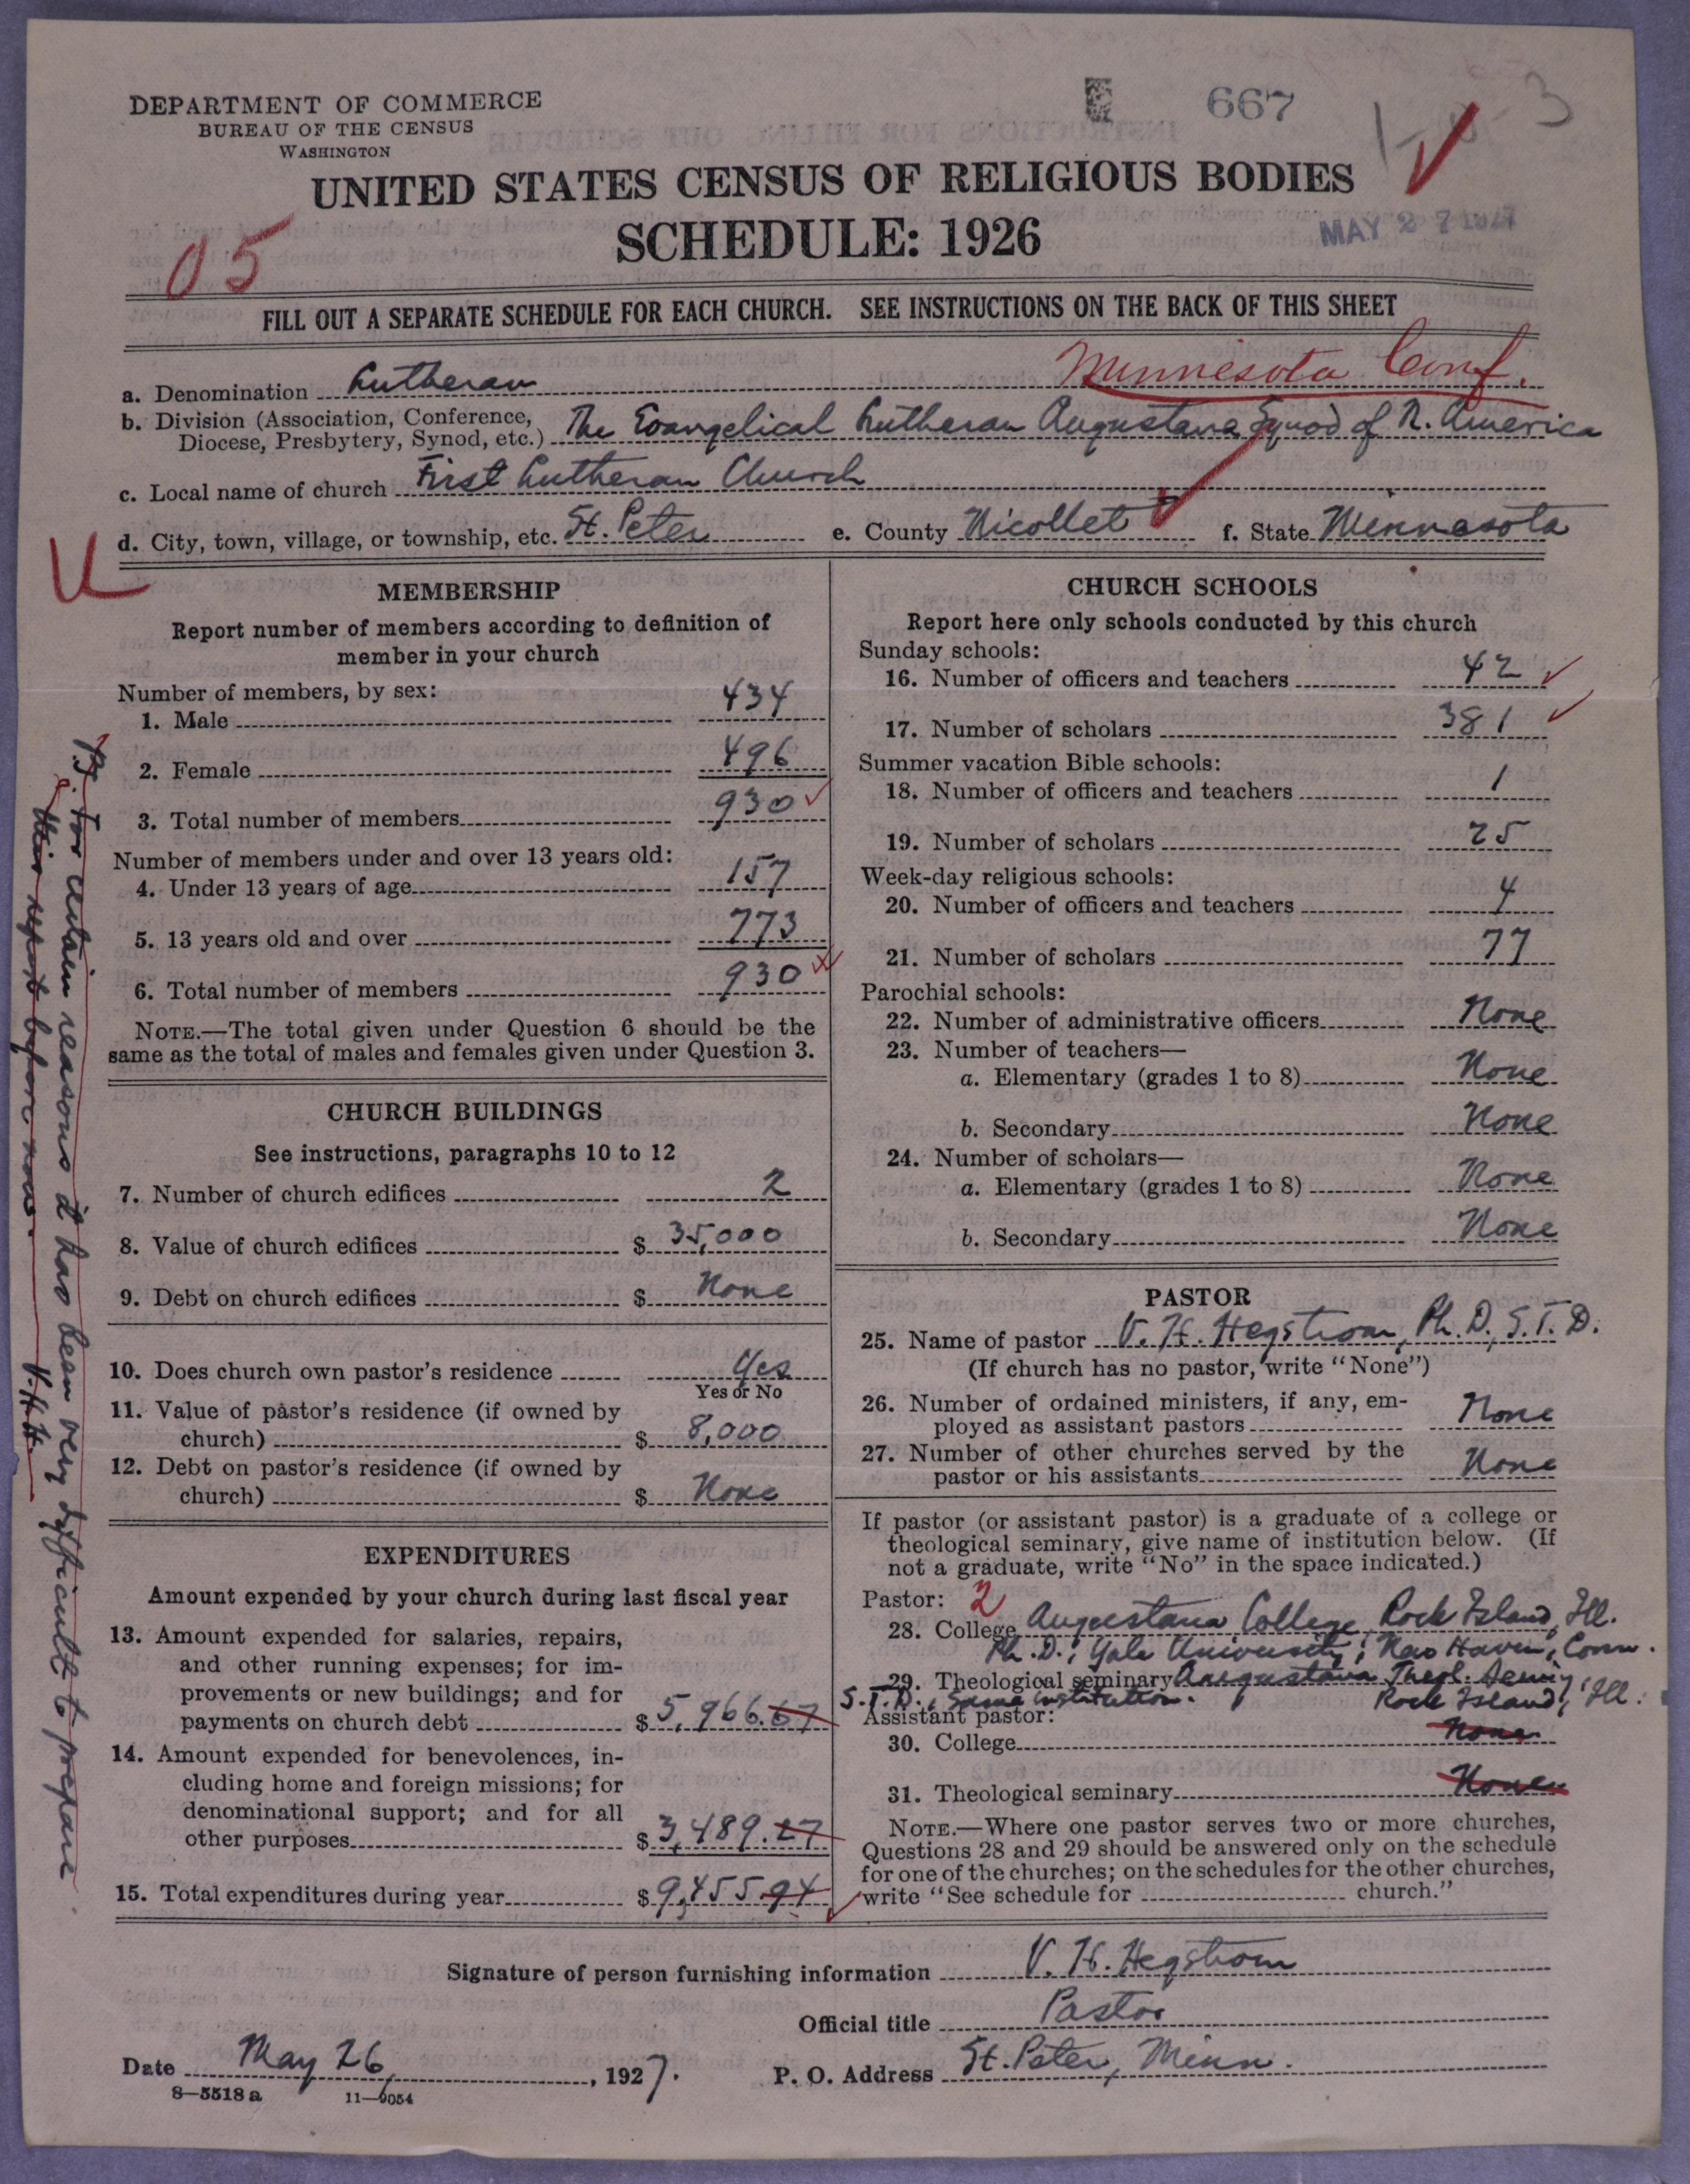 667
3
DEPARTMENT OF COMMERCE
BUREAU OF THE CENSUS
WASHINGTON
UNITED STATES CENSUS OF RELIGIOUS BODIES
SCHEDULE: 1926
MAY 27 1927
05
FILL OUT A SEPARATE SCHEDULE FOR EACH CHURCH. SEE INSTRUCTIONS ON THE BACK OF THIS SHEET
Minnesota Conf.
a. Denomination Lutheran
b. Division (Association, Conference,
Diocese, Presbytery, Synod, etc.) The Evangelical Lutheran Augustana Synod of N. America
c. Local name of church First Lutheran Church
d. City, town, village, or township, etc. St. Peter e. County Nicollet f. State Minnesota
MEMBERSHIP
Report number of members according to definition of
member in your church
Number of members, by sex:
1. Male 434
2. Female 496
3. Total number of members 930
Number of members under and over 13 years old:
4. Under 13 years of age 157
5. 13 years old and over 773
6. Total number of members 930
NOTE.—The total given under Question 6 should be the
same as the total of males and females given under Question 3.
CHURCH BUILDINGS
See instructions, paragraphs 10 to 12
7. Number of church edifices 2
8. Value of church edifices $ 35,000
9. Debt on church edifices $ None
10. Does church own pastor's residence Yes
Yes or No
11. Value of pastor's residence (if owned by
church) $ 8,000
12. Debt on pastor's residence (if owned by
church) $ None
EXPENDITURES
Amount expended by your church during last fiscal year
13. Amount expended for salaries, repairs,
and other running expenses; for im-
provements or new buildings; and for
payments on church debt $ 5,966.67
14. Amount expended for benevolences, in-
cluding home and foreign missions; for
denominational support; and for all
other purposes $ 3,489.27
15. Total expenditures during year $ 9,455.94
CHURCH SCHOOLS
Report here only schools conducted by this church
Sunday schools:
16. Number of officers and teachers 42
17. Number of scholars 381
Summer vacation Bible schools:
18. Number of officers and teachers 1
19. Number of scholars 25
Week-day religious schools:
20. Number of officers and teachers 4
21. Number of scholars 77
Parochial schools:
22. Number of administrative officers None
23. Number of teachers—
a. Elementary (grades 1 to 8) None
b. Secondary None
24. Number of scholars—
a. Elementary (grades 1 to 8) None
b. Secondary None
PASTOR
25. Name of pastor V. H. Hegstrom, Ph. D., S. T. D.
(If church has no pastor, write "None")
26. Number of ordained ministers, if any, em-
ployed as assistant pastors None
27. Number of other churches served by the
pastor or his assistants None
If pastor (or assistant pastor) is a graduate of a college or
theological seminary, give name of institution below. (If
not a graduate, write "No" in the space indicated.)
Pastor: 2
28. College Augustana College, Rock Island, Ill.
Ph. D., Yale University, New Haven, Conn.
29. Theological seminary Augustana Theol. Seminy
S. T. D., Same institution. Rock Island, Ill.
Assistant pastor:
30. College None
31. Theological seminary None
NOTE.—Where one pastor serves two or more churches,
Questions 28 and 29 should be answered only on the schedule
for one of the churches; on the schedules for the other churches,
write "See schedule for church."
Signature of person furnishing information V. H. Hegstrom
Official title Pastor
Date May 26, 1927. P. O. Address St. Peter, Minn.
8—5518 a 11—9054
P.S. For certain reasons it has been very difficult to prepare
this report before now. V.H.H.